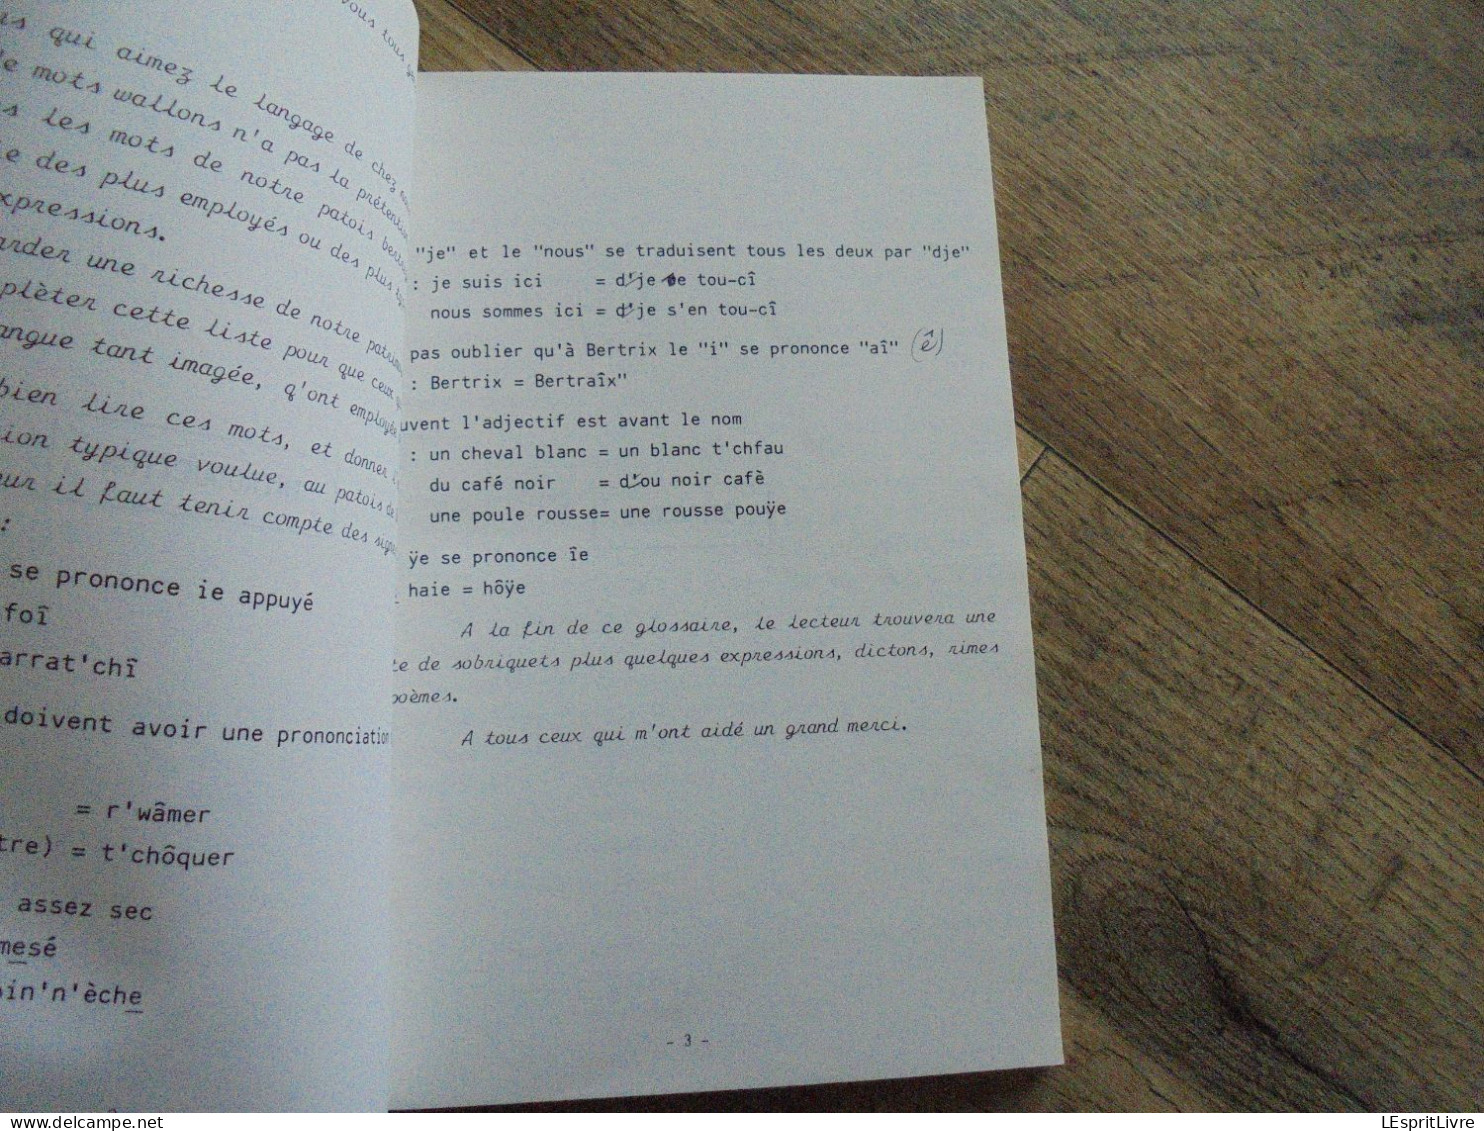 vous tous
qui aimez le langage de chez
mots wallons n'a pas la prétention
les mots de notre patois
des plus employés ou des plus
xpressions.
arder une richesse de notre
plèter cette liste pour que ceux
angue tant imagée, q'ont employée
bien lire ces mots, et donner
ion typique voulue, au patois de
our il faut tenir compte des
:
se prononce ie appuyé
foî
arrat'chî
doivent avoir une prononciation
= r'wâmer
tre) = t'chôquer
assez sec
mesé
oin'n'èche
"je" et le "nous" se traduisent tous les deux par "dje"
: je suis ici = d'je se tou-cî
nous sommes ici = d'je s'en tou-cî
pas oublier qu'à Bertrix le "i" se prononce "aî" (ê)
: Bertrix = Bertraîx"
uvent l'adjectif est avant le nom
: un cheval blanc = un blanc t'chfau
du café noir = d'ou noir cafè
une poule rousse= une rousse pouÿe
ÿe se prononce îe
haie = hôÿe
A la fin de ce glossaire, le lecteur trouvera une
te de sobriquets plus quelques expressions, dictons, rimes
poèmes.
A tous ceux qui m'ont aidé un grand merci.
- 3 -
LEspritLivre
delcampe.net